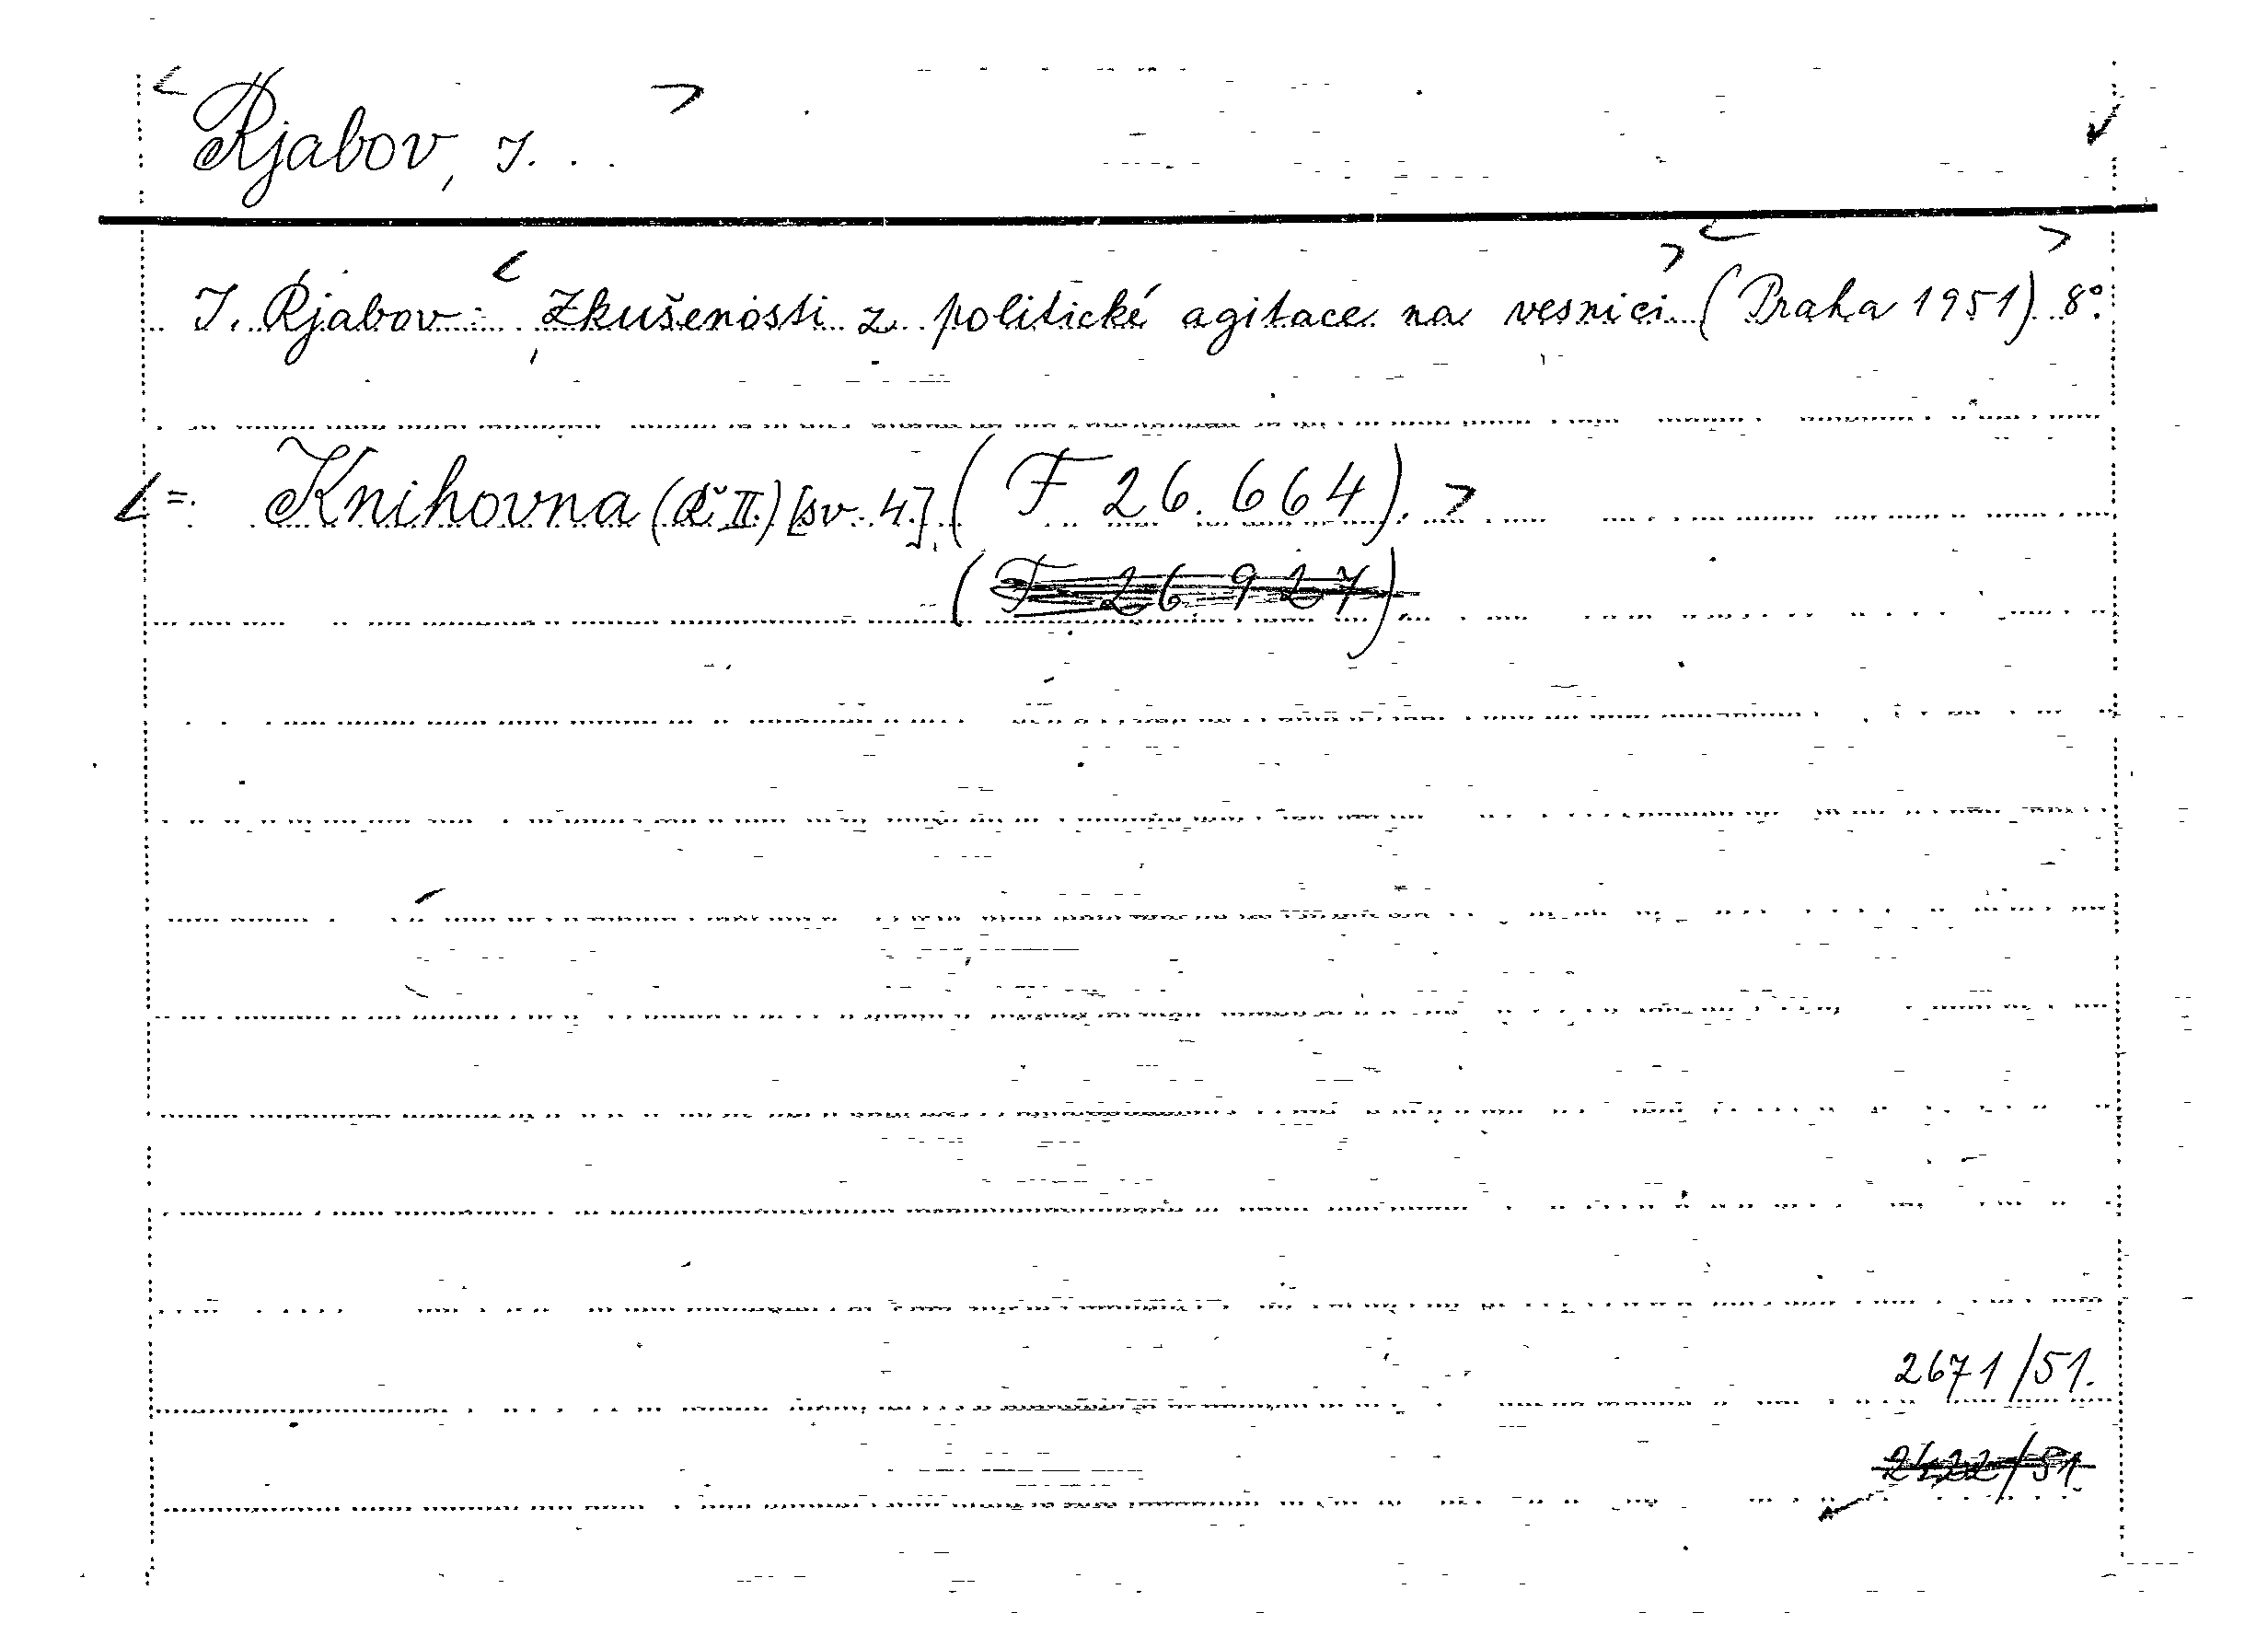 <Rjabov, I. . .>
I. Rjabov: <Zkušenosti z politické agitace na vesnici> <(Praha 1951)> 8°.
<= Knihovna (Ř. II.) [sv. 4.] (F 26.664).>
(F 26.927).
2671/51.
2422/51